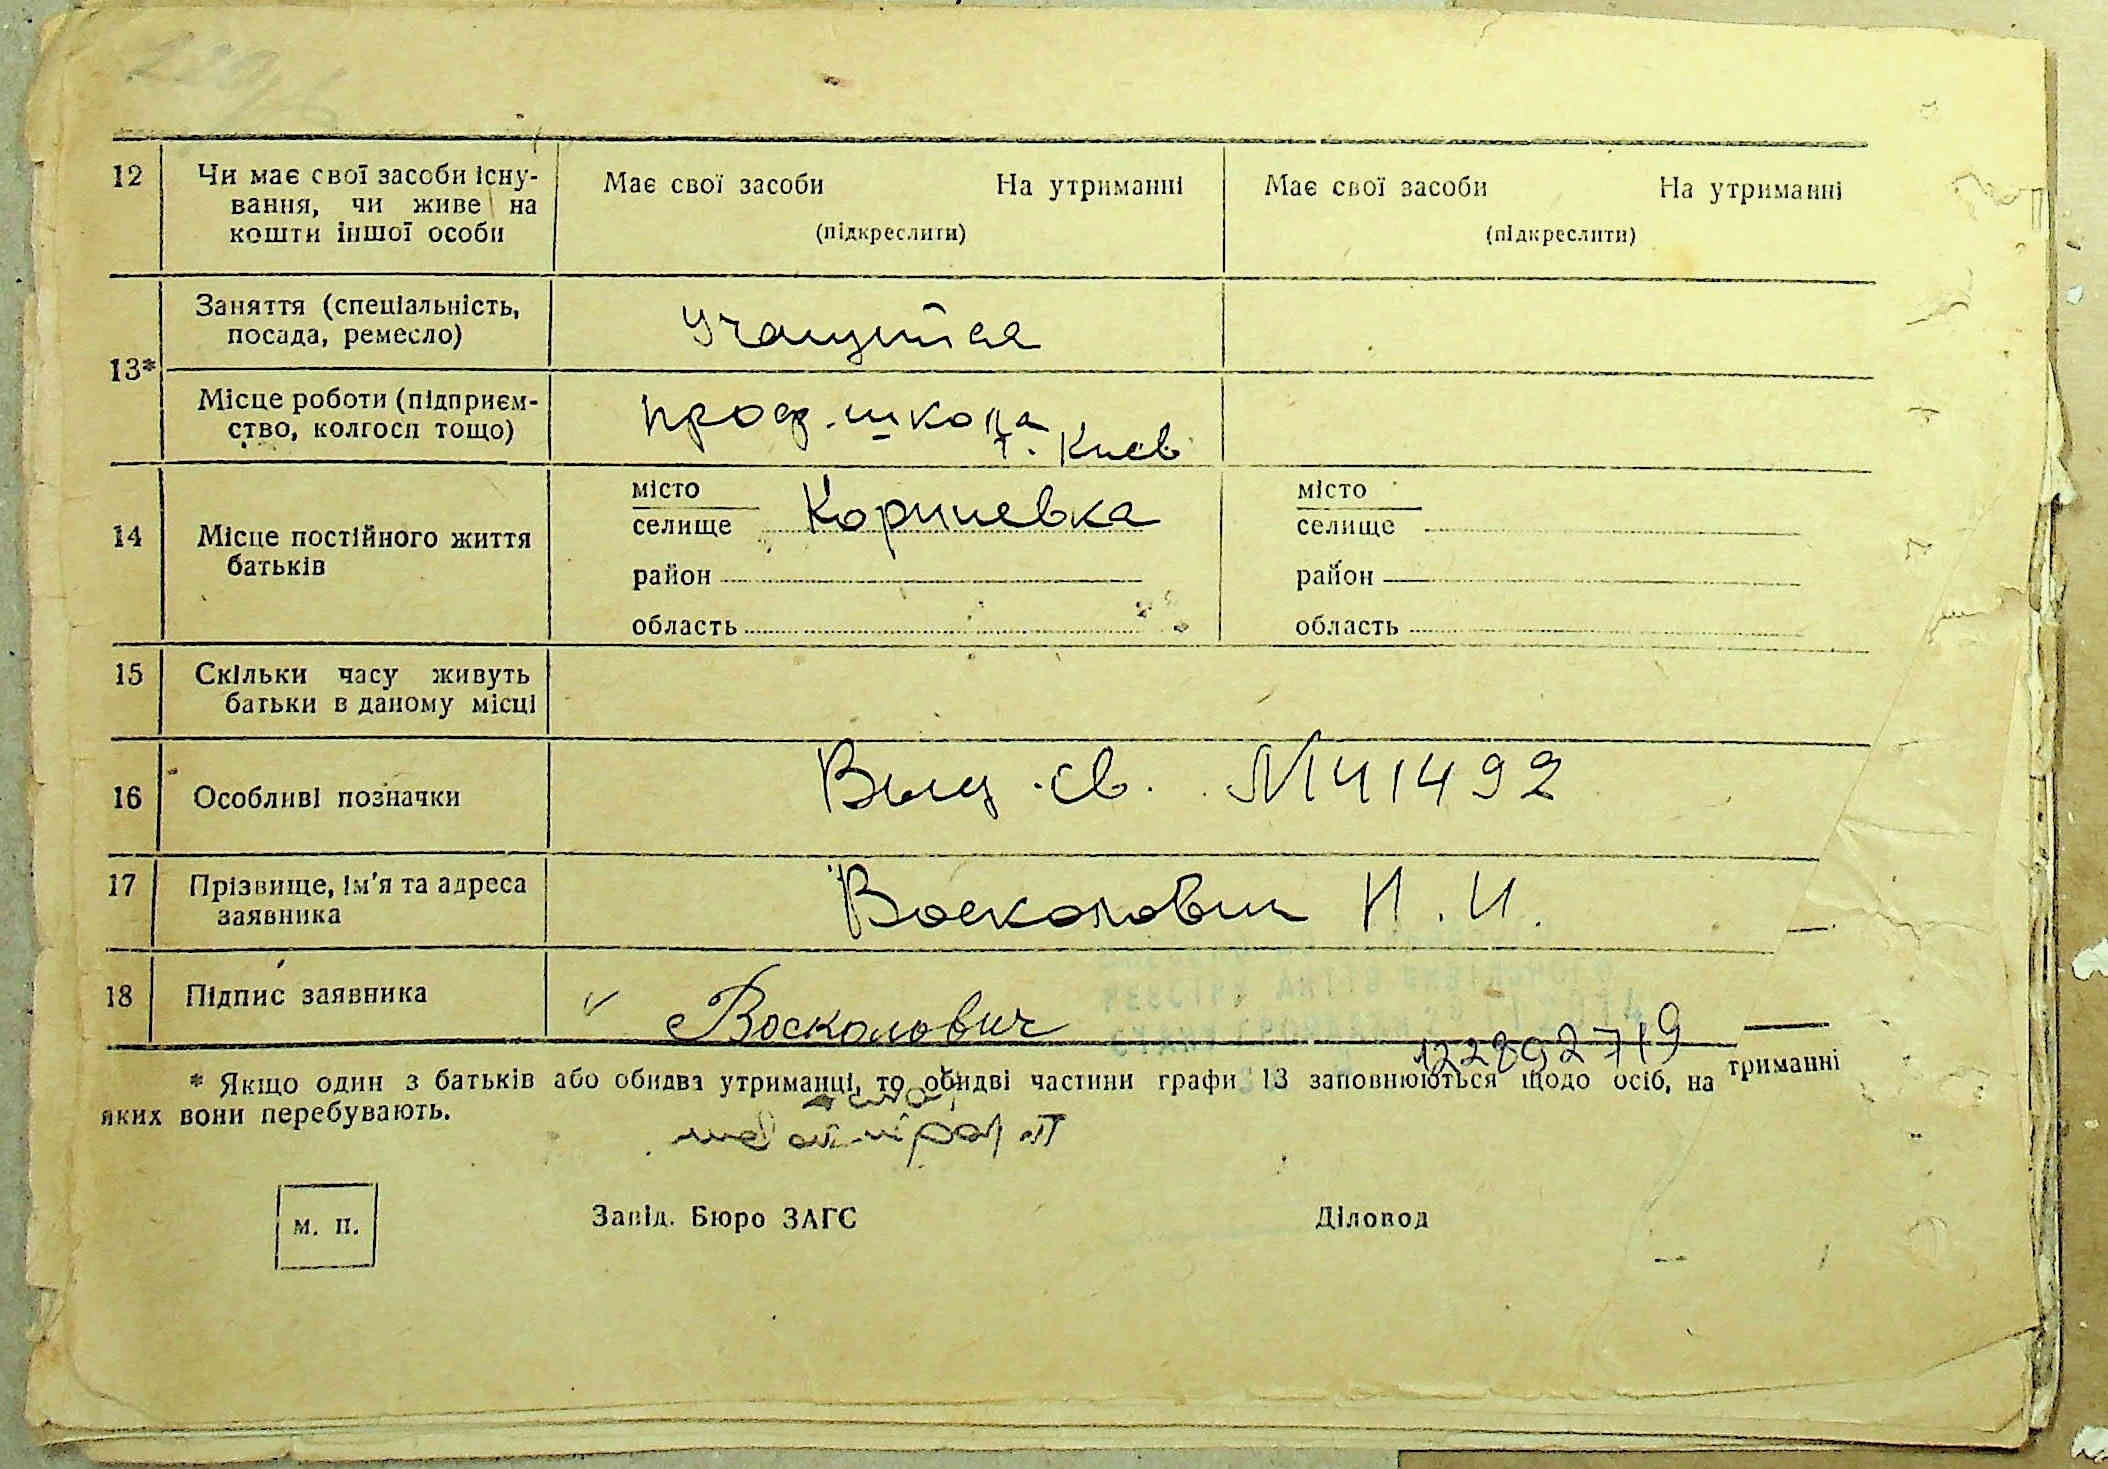 12
Чи має свої засоби існу-
вання, чи живе на
кошти іншої особи
Має свої засоби На утриманні
(підкреслити)
Має свої засоби На утриманні
(підкреслити)
13*
Заняття (спеціальність,
посада, ремесло)
Учащийся
Місце роботи (підприєм-
ство, колгосп тощо)
проф. школа
г. Киев
14
Місце постійного життя
батьків
місто
селище Корпиевка
район
область
місто
селище
район
область
15
Скільки часу живуть
батьки в даному місці
16
Особливі позначки
Выд. св. №41492
17
Прізвище, ім'я та адреса
заявника
Восколович Н. И.
18
Підпис заявника
Восколович
РЕЄСТРУ АКТІВ ЦИВІЛЬНОГО
СТАНУ ГРОМАДЯН
122892719
* Якщо один з батьків або обидва утриманці, то обидві частини графи 13 заповнюються щодо осіб, на триманні
яких вони перебувають.
М. П.
Завід. Бюро ЗАГС
Діловод